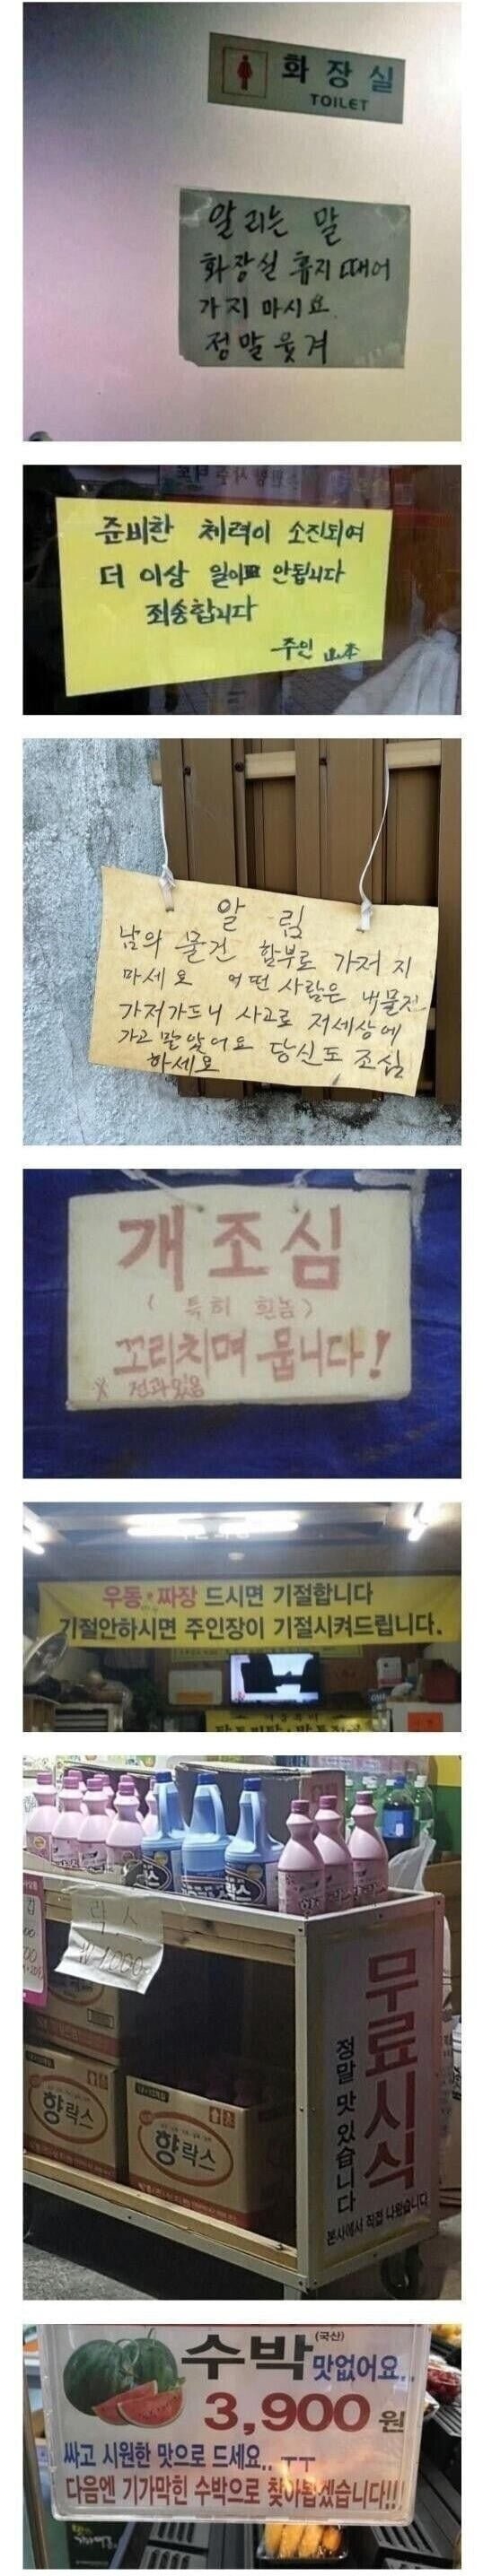 화장실
TOILET
알리는 말
화장실 휴지 떼어
가지 마시요.
정말 웃겨
준비한 체력이 소진되여
더 이상 일이 안됩니다
죄송합니다
주인 山本
알 림
남의 물건 함부로 가저 지
마세요 어떤 사람은 내물건
가저가드니 사고로 저세상에
가고 말았어요 당신도 조심
하세요
개조심
( 특히 흰놈 )
꼬리치며 뭅니다!
※ 전과있음
우동·짜장 드시면 기절합니다
기절안하시면 주인장이 기절시켜드립니다.
락스
₩1,000-
향락스
향락스
무료시식
정말 맛있습니다
본사에서 직접 나왔습니다
수박 (국산) 맛없어요..
3,900원
싸고 시원한 맛으로 드세요.. ㅜㅜ
다음엔 기가막힌 수박으로 찾아뵙겠습니다!!